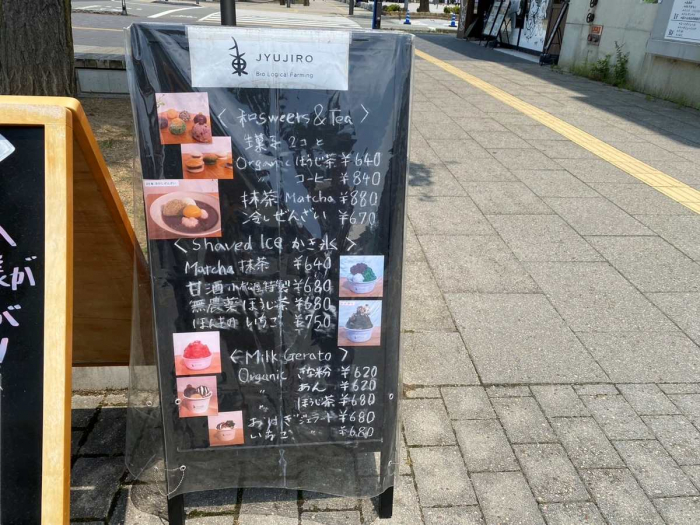 東 JYUJIRO
Bio Logical Farming
〈和sweets&Tea〉
生菓子2コと
Organic ほうじ茶 ¥640
〃 コーヒー ¥840
抹茶 Matcha ¥880
冷しぜんざい ¥670
〈Shaved Ice かき氷〉
Matcha 抹茶 ¥640
甘酒 特製 ¥680
無農薬ほうじ茶 ¥680
いちご ¥750
〈Milk Gerato〉
Organic きな粉 ¥620
〃 あん ¥620
〃 ほうじ茶 ¥680
おはぎジェラード ¥680
いちご 〃 ¥680
が
が